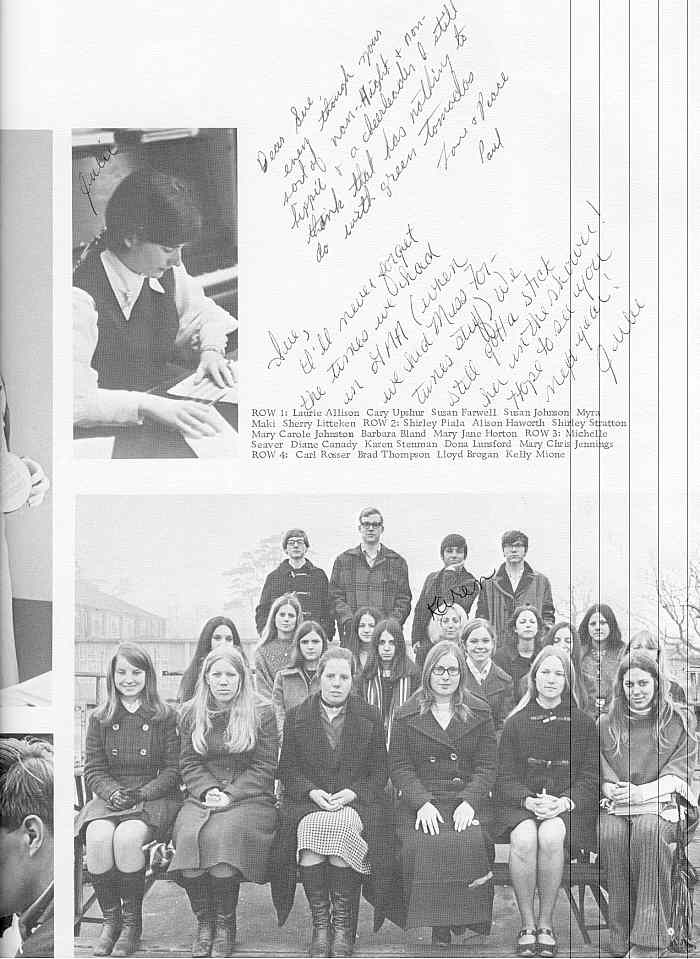 Dear Sue
even though your
sort of non-Hight & non-
hippie & a cheerleader I still
think that has nothing to
do with green tomatoes
Love & Peace
Paul
Julie
Sue,
I'll never forget
the times we had
in (when
we had Miss For-
tunes stuff) We
still gotta stick
in the shower!
Hope to see you
next year!
Julie
ROW 1: Laurie Allison Cary Upshur Susan Farwell Susan Johnson Myra
Maki Sherry Litteken ROW 2: Shirley Piala Alison Haworth Shirley Stratton
Mary Carole Johnston Barbara Bland Mary Jane Horton ROW 3: Michelle
Seaver Diane Canady Karen Stenman Dona Lunsford Mary Chris Jennings
ROW 4: Carl Rosser Brad Thompson Lloyd Brogan Kelly Mione
Karen